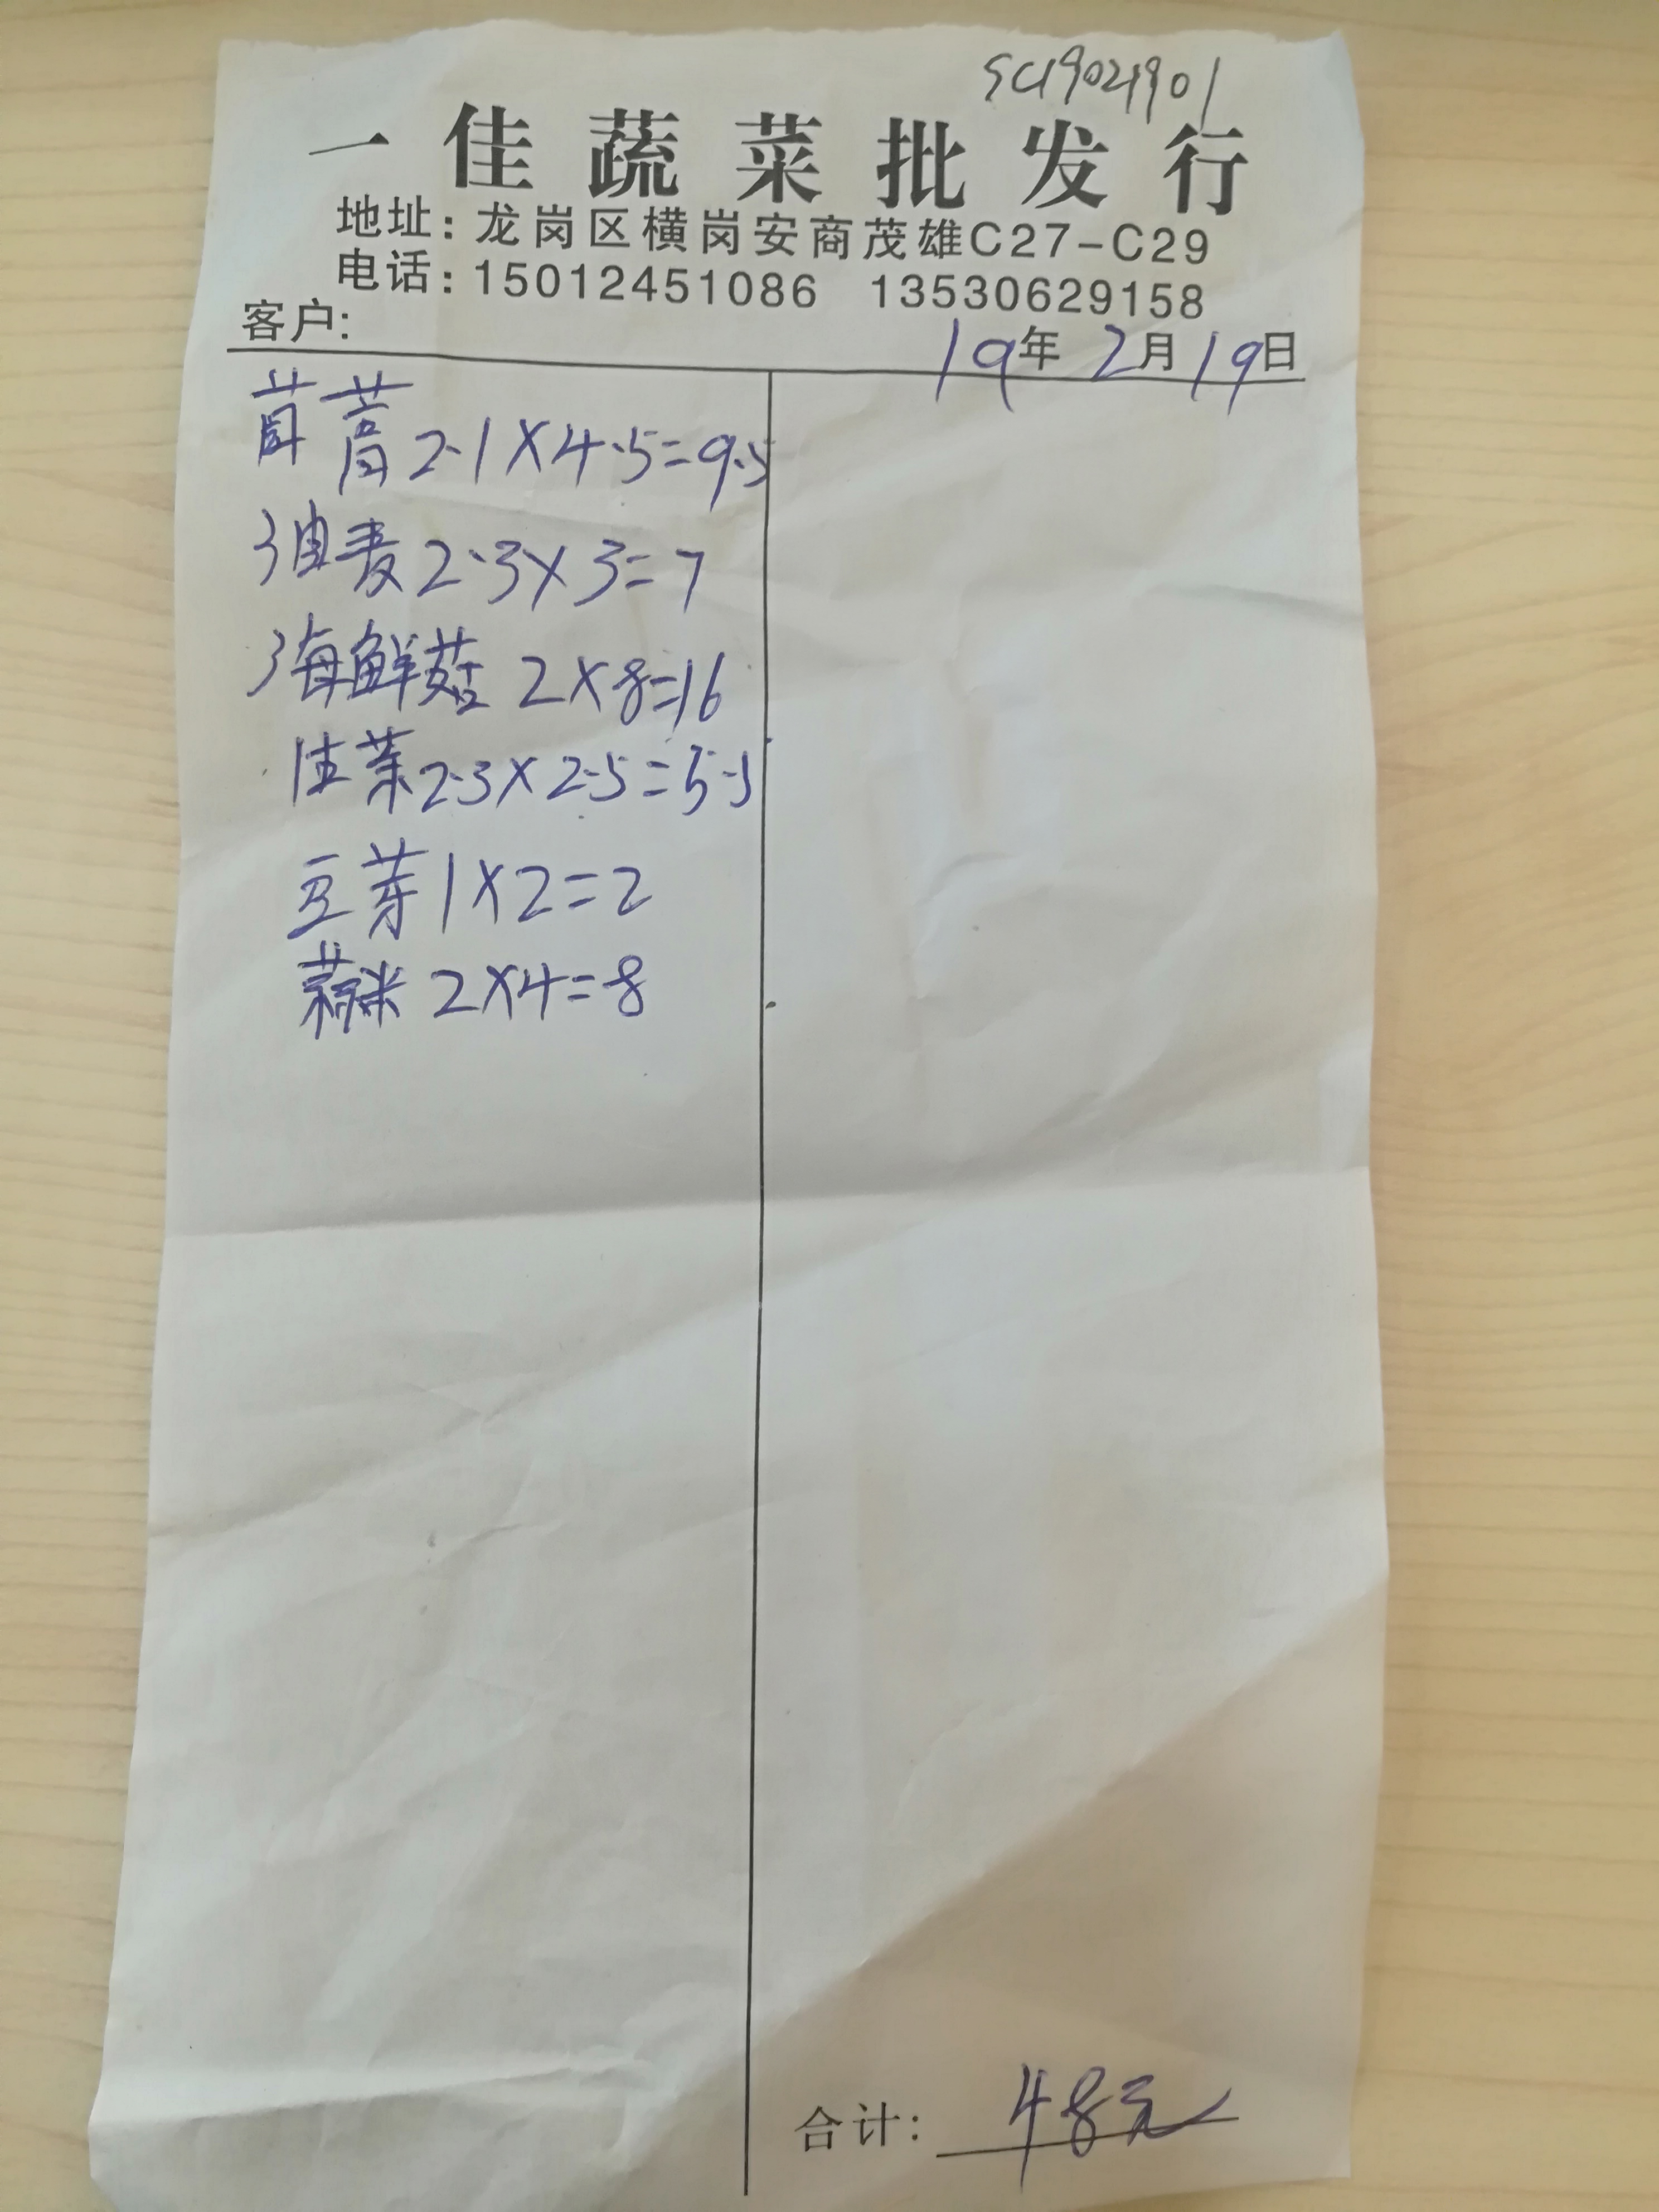 SC19021901
一佳蔬菜批发行
地址：龙岗区横岗安商茂雄C27-C29
电话：15012451086 13530629158
客户:
19年2月19日
茼蒿2.1×4.5=9.5
油麦2.3×3=7
海鲜菇 2×8=16
佳菜2.3×2.5=5.5
豆芽1×2=2
蒜米 2×4=8
合计: 48元